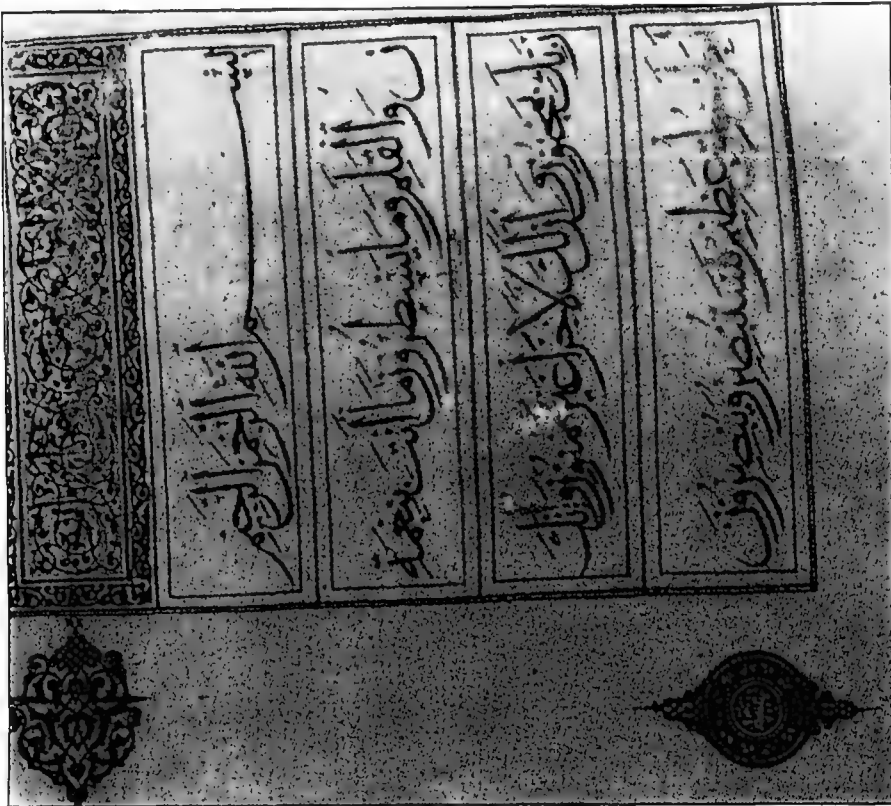 بسم الله الرحمن الرحيم
ن والقلم وما يسطرون ما أنت بنعمة
ربك بمجنون وإن لك لأجرا غير ممنون وإنك
لعلى خلق عظيم فستبصر ويبصرون